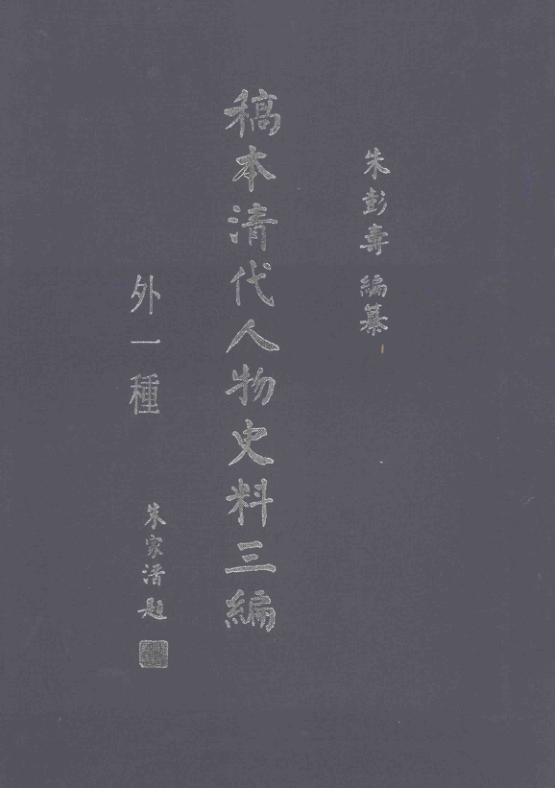 朱彭壽編纂
稿本清代人物史料三編
外一種
朱家溍題